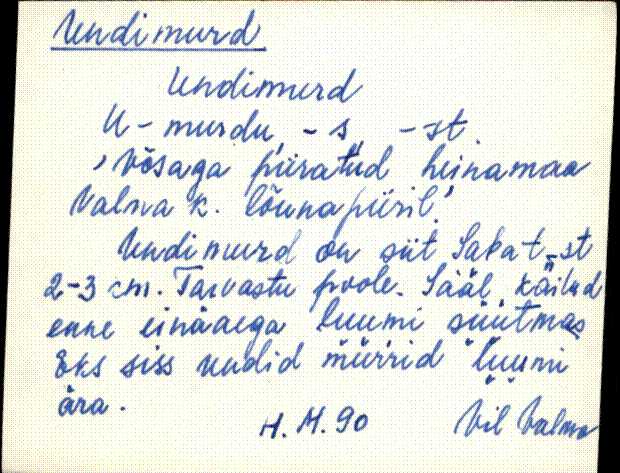 Undimurd
Undimurd
U-murdu -s -st
'võsaga piiratud heinamaa
Valma k. lõunapiiril.'
Undimurd on siit Sakat-st
2-3 cm. Tarvastu poole. Sääl käitud
enne einäaega luumi süütmas
Eks siss undid mürrid luumi
ära.
H. M. 90 Vil Valma